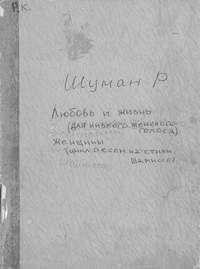 Р.К.
Шуман Р
Любовь и жизнь
(для низкого женского
голоса)
женщины
(цикл песен на стихи
Шамиссо)